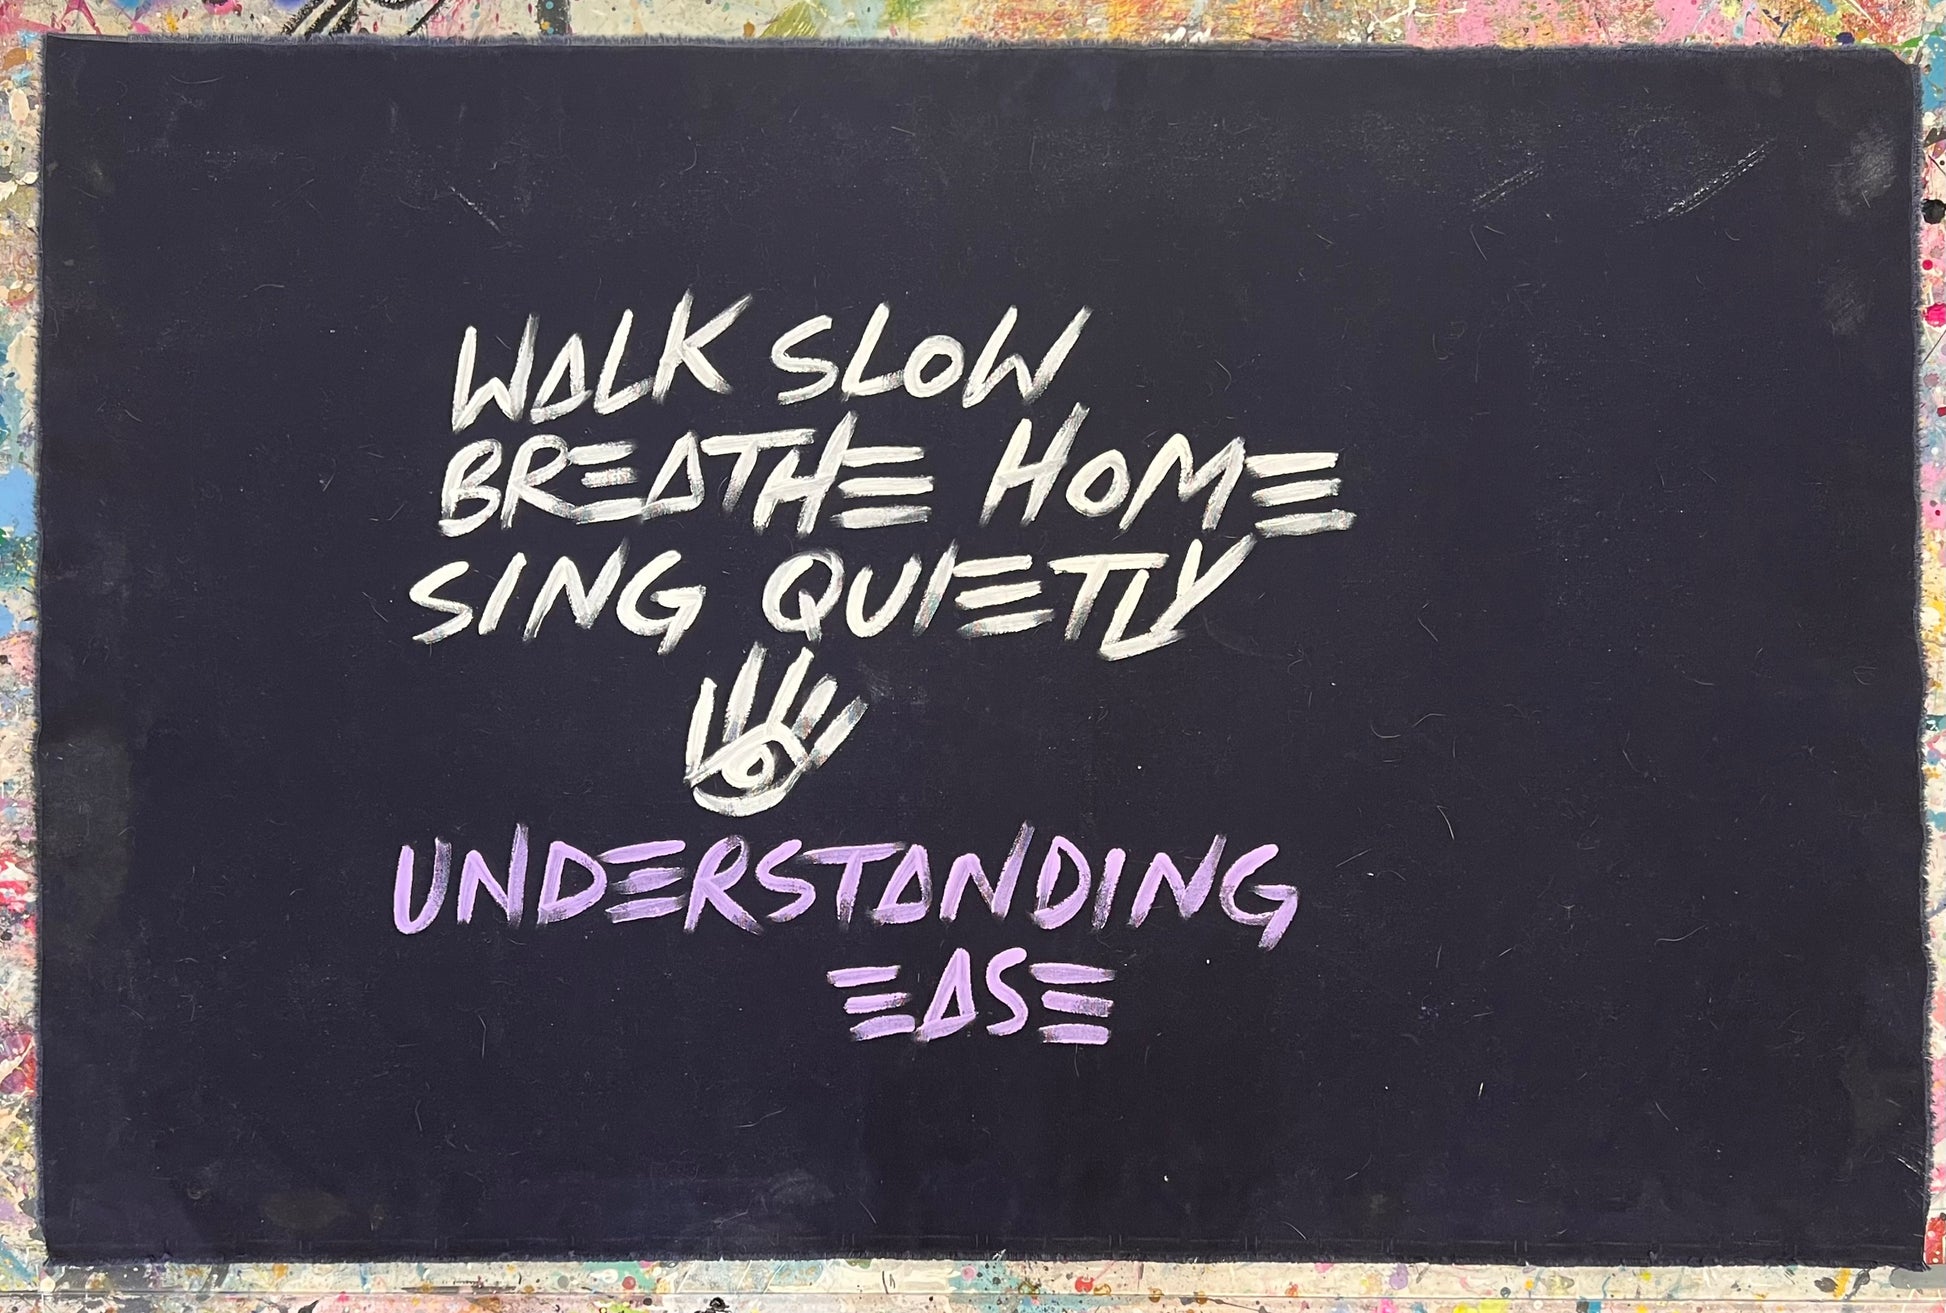 WALK SLOW
BREATHE HOME
SING QUIETLY
UNDERSTANDING
EASE